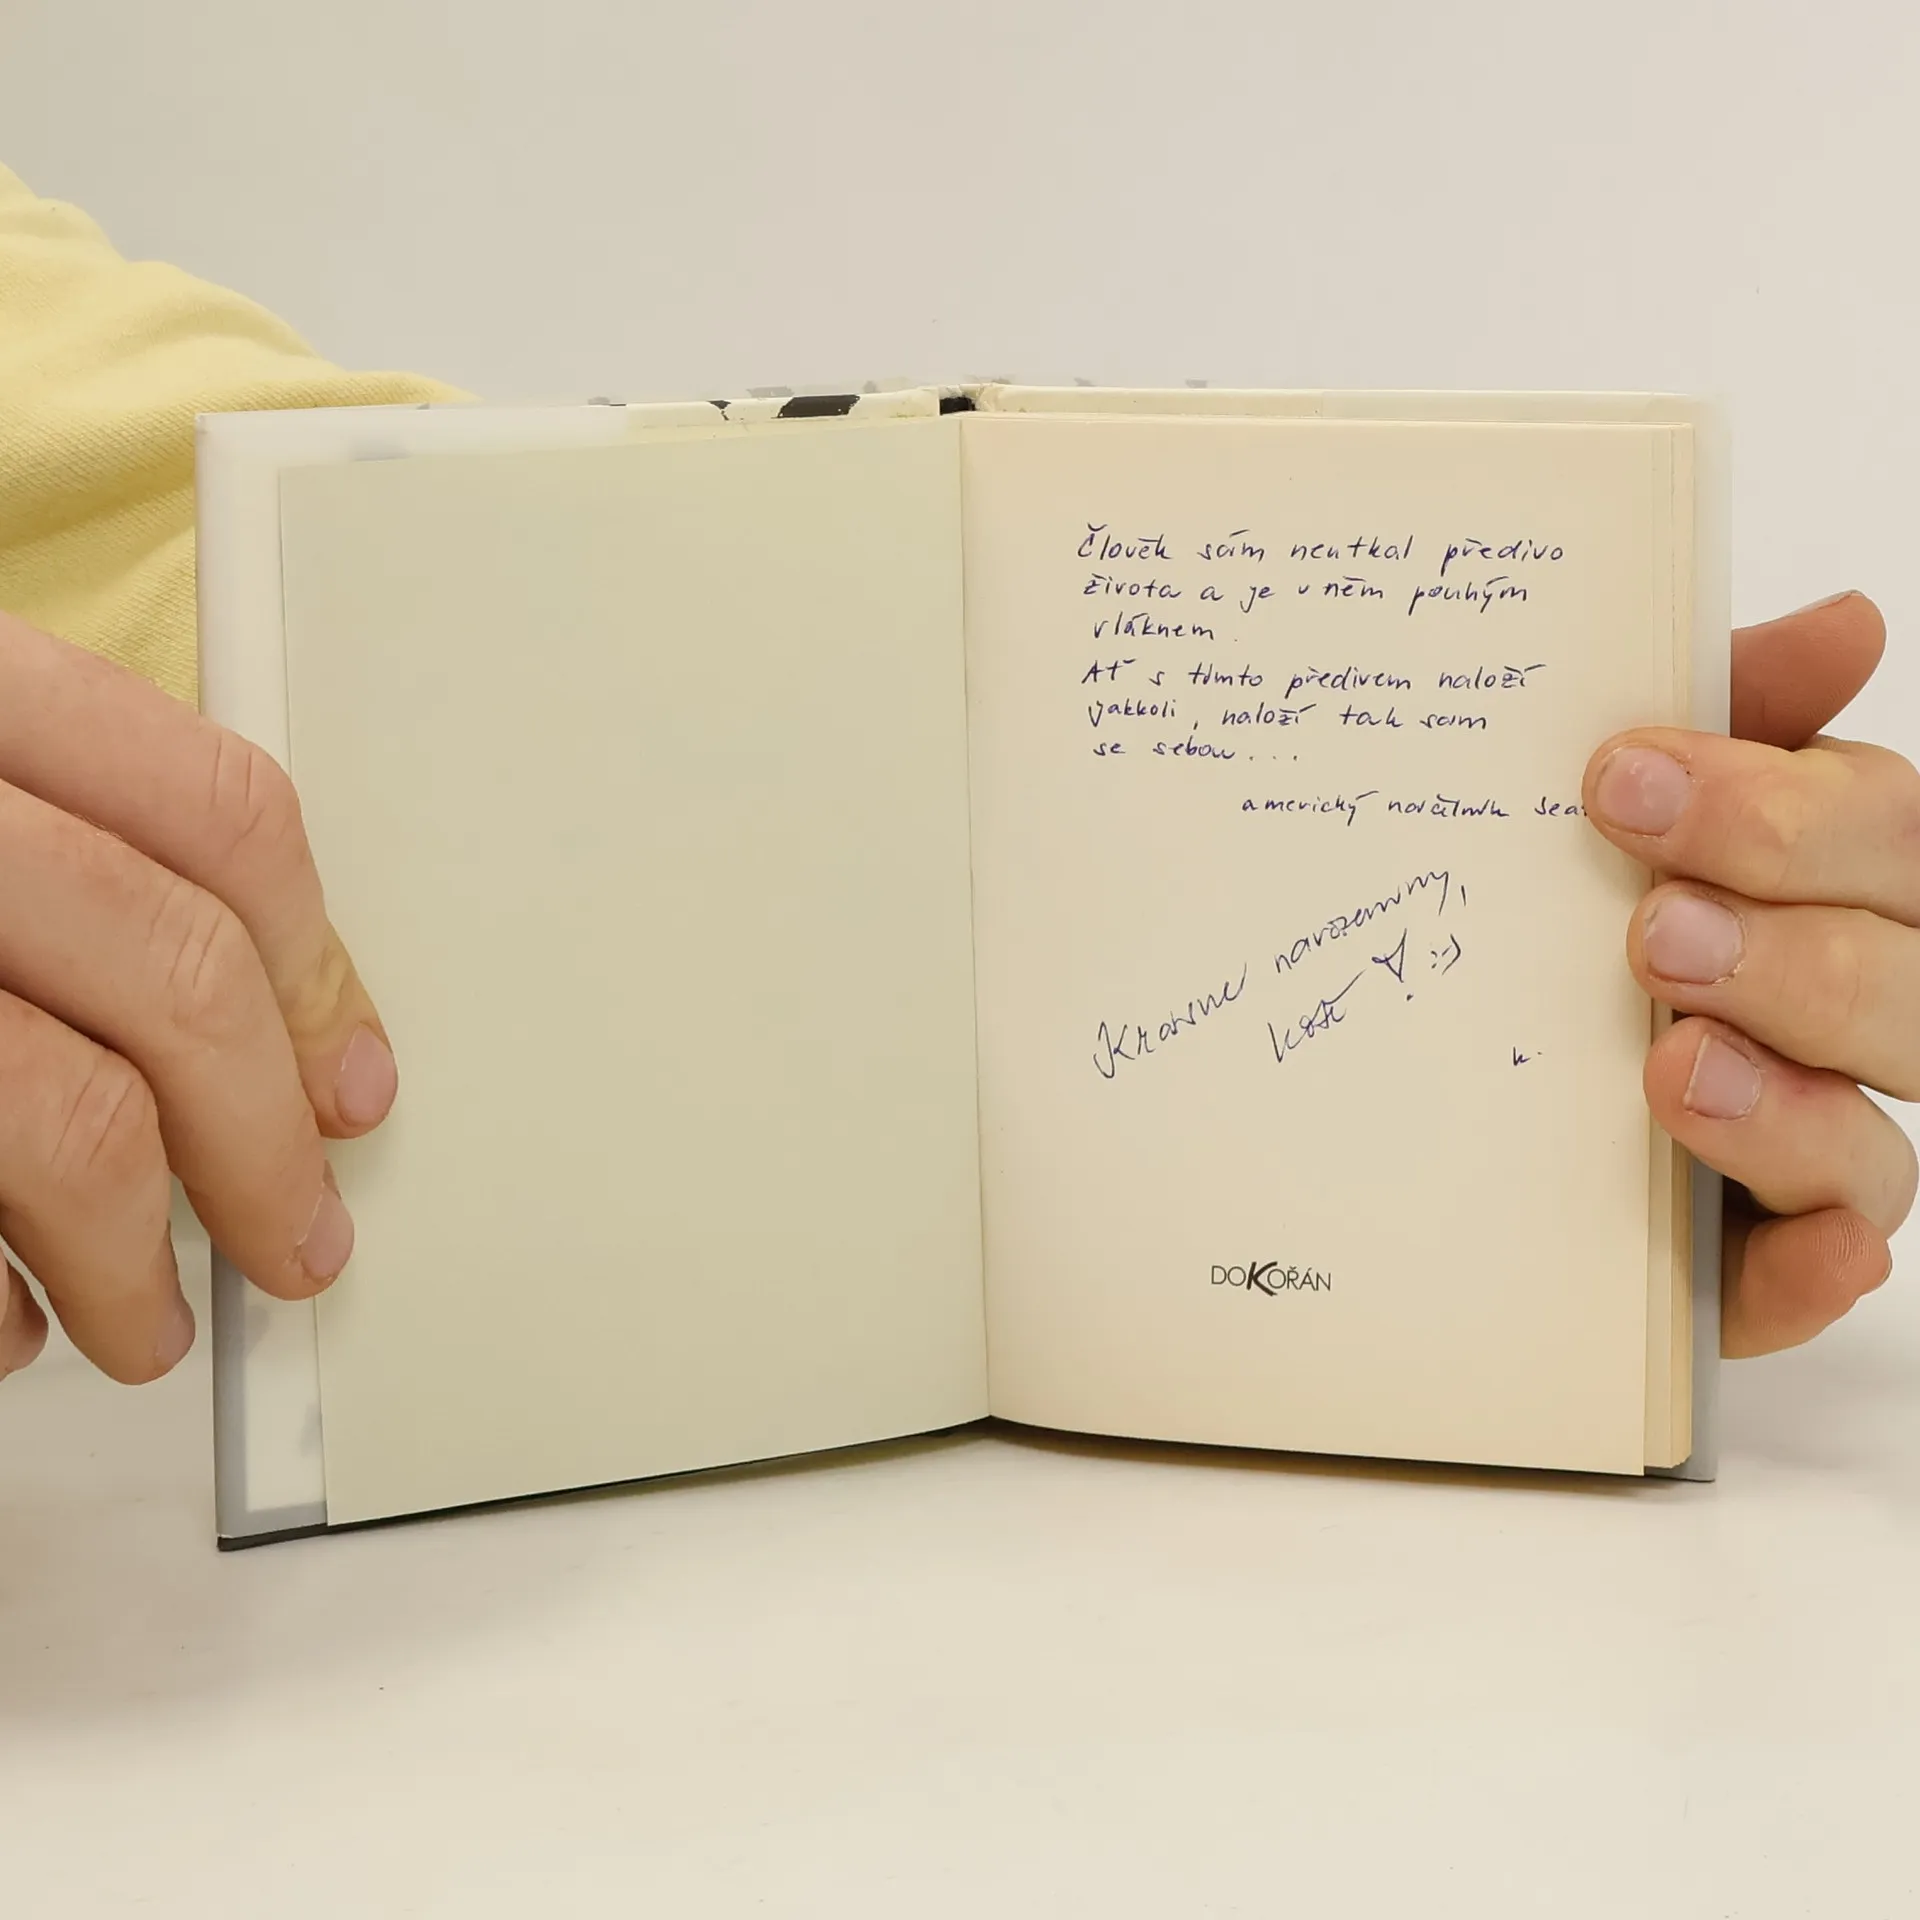 Člověk sám neutkal předivo
života a je v něm pouhým
vláknem.
Ať s tímto předivem naloží
jakkoli, naloží tak sám
se sebou...
americký náčelník Sea
Krásné narozeniny,
:-)
k.
DOKOŘÁN